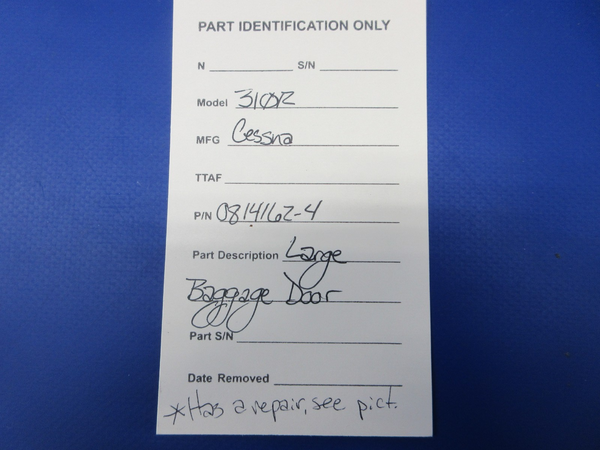 PART IDENTIFICATION ONLY
N S/N
Model 310R
MFG Cessna
TTAF
P/N 0814162-4
Part Description Large
Baggage Door
Part S/N
Date Removed
*Has a repair, see pict.